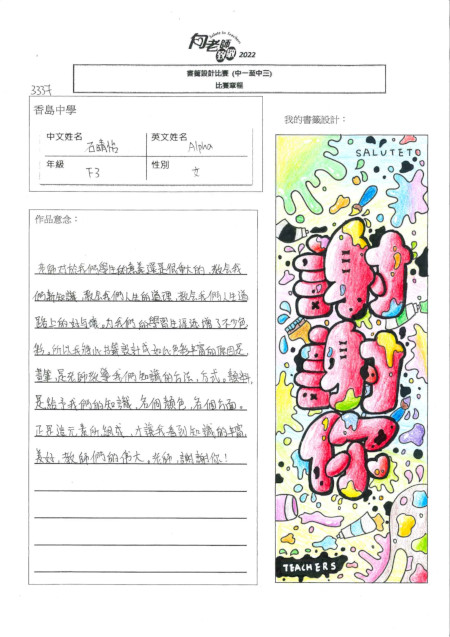 向老師致敬 2022
Salute to Teachers
書籤設計比賽 (中一至中三)
比賽章程
3337
香島中學
中文姓名
英文姓名
Alpha
年級
F.3
性別
女
我的書籤設計:
作品意念:
老師對於我們學生的意義還是很重大的,教會我
們新知識,教會我們人生的道理,教會我們人生道
路上的好與壞。為我們的學習生涯添增了不少色
彩,所以我將此書籤設計成如此色彩豐富的原因是,
畫筆,是老師教導我們知識的方法,方式。顏料,
是給予我們的知識,各個顏色,各個方面。
正是這元素所組成,才讓我看到知識的豐富,
美好,教師們的偉大。老師,謝謝你!
SALUTETO
TEACHERS